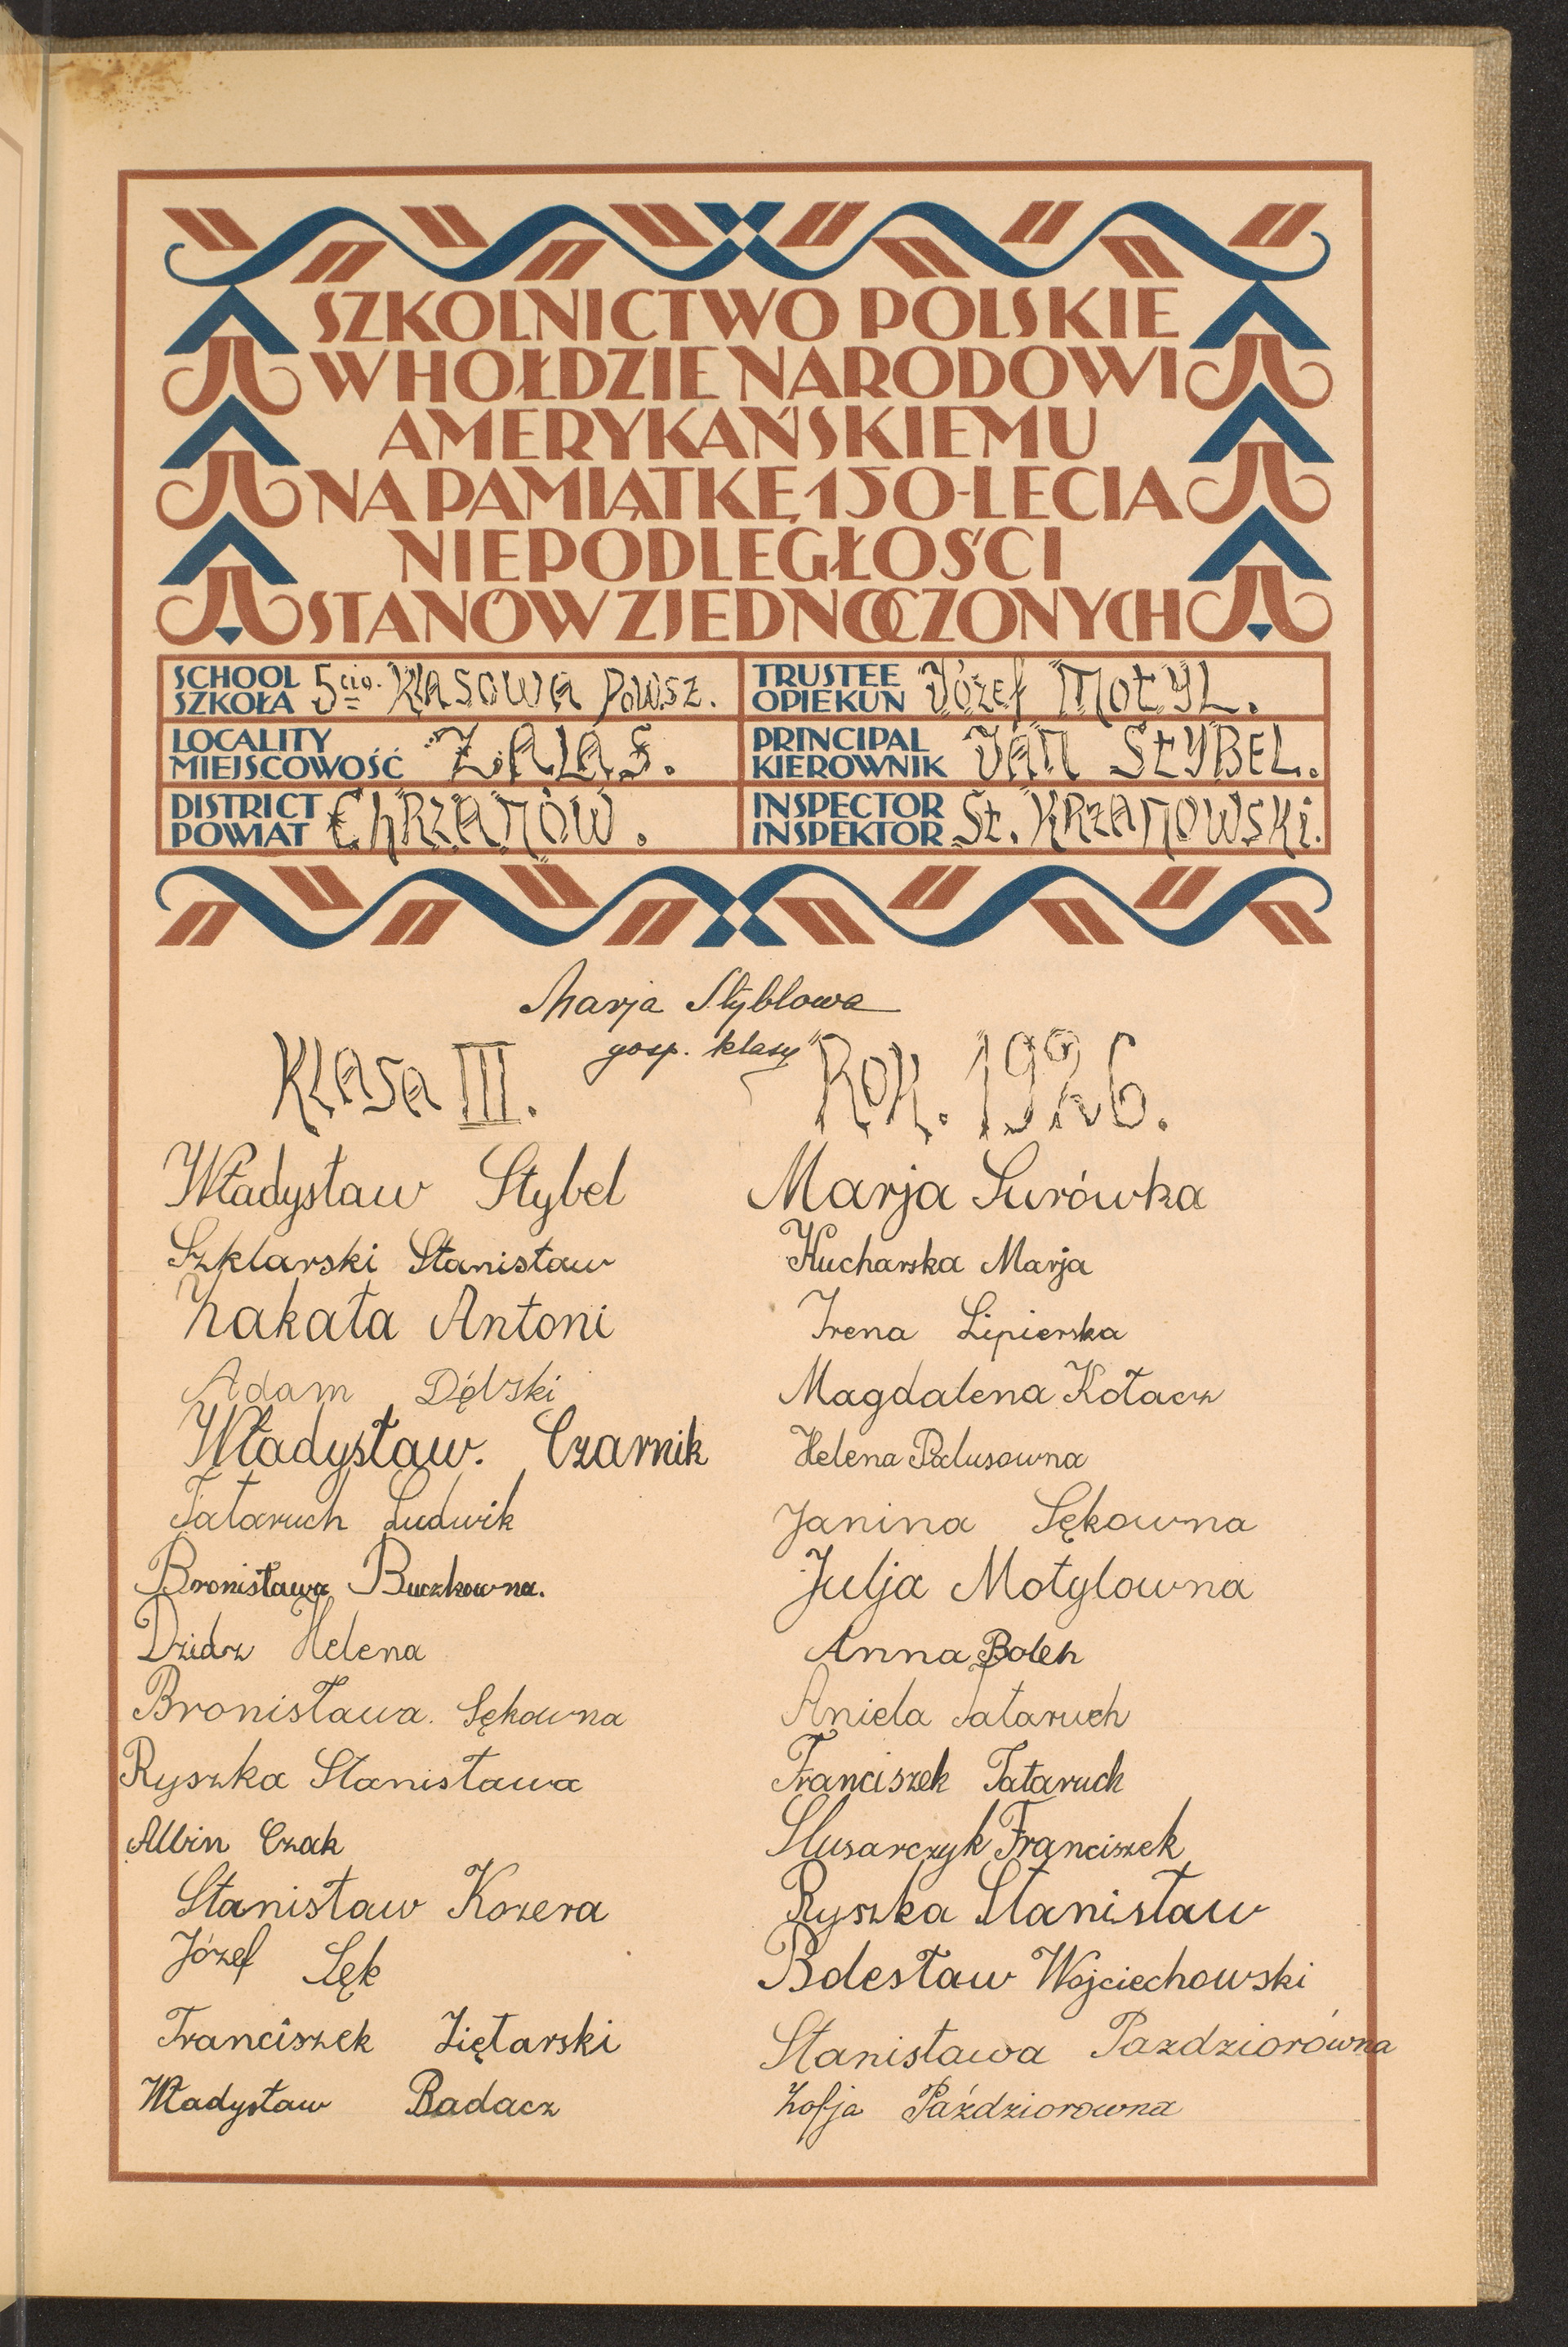 SZKOLNICTWO POLSKIE
W HOŁDZIE NARODOWI
AMERYKAŃSKIEMU
NA PAMIĄTKĘ 150-LECIA
NIEPODLEGŁOŚCI
STANÓW ZJEDNOCZONYCH
SCHOOL
SZKOŁA 5cio. Klasowa Powsz.
TRUSTEE
OPIEKUN Józef Motyl.
LOCALITY
MIEJSCOWOŚĆ Zalas.
PRINCIPAL
KIEROWNIK Jan Stybel.
DISTRICT
POWIAT Chrzanów.
INSPECTOR
INSPEKTOR St. Krzanowski.
Marja Styblowa
gosp. klasy
Klasa III.
Rok. 1926.
Władysław Stybel
Szklarski Stanisław
Żakała Antoni
Adam Dębski
Władysław. Czarnik
Tataruch Ludwik
Bronisława Buczkowna.
Dzidz Helena
Bronisława. Sękowna
Ryszka Stanisława
Albin Czak
Stanisław Kozera
Józef Sęk
Franciszek Ziętarski
Władysław Badacz
Marja Surówka
Kucharska Marja
Irena Lipierska
Magdalena Kołacz
Helena Palusowna
Janina Sękowna
Julja Motylowna
Anna Bolek
Aniela Tataruch
Franciszek Tataruch
Slusarczyk Franciszek
Ryszka Stanisław
Bolesław Wojciechowski
Stanisława Pazdziorówna
Zofja Paździorowna